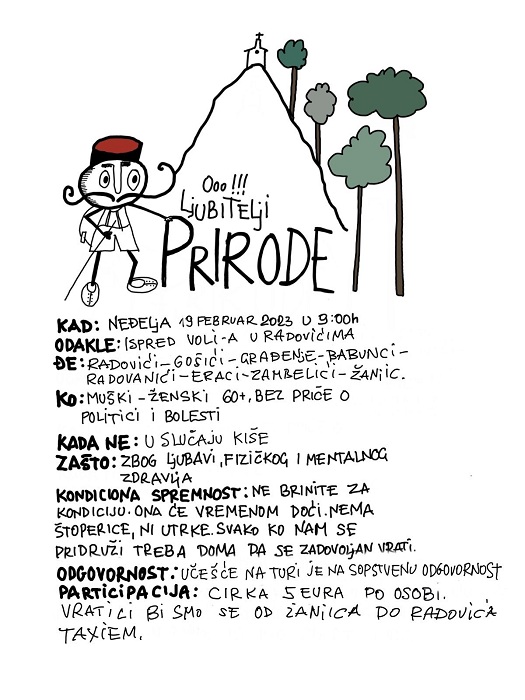 Ooo !!!
LJUBITELJI
PRIRODE
KAD: NEDELJA 19 FEBRUAR 2023 U 9:00h
ODAKLE: ISPRED VOLI-A U RADOVIĆIMA
ĐE: RADOVIĆI-GOŠIĆI-GRAĐENJE-BABUNCI-
RADOVANIĆI-ERACI-ZAMBELIĆI-ŽANJIC.
KO: MUŠKI-ŽENSKI 60+, BEZ PRIČE O
POLITICI I BOLESTI
KADA NE: U SLUČAJU KIŠE
ZAŠTO: ZBOG LJUBAVI, FIZIČKOG I MENTALNOG
ZDRAVLJA
KONDICIONA SPREMNOST: NE BRINITE ZA
KONDICIJU. ONA ĆE VREMENOM DOĆI. NEMA
ŠTOPERICE, NI UTRKE. SVAKO KO NAM SE
PRIDRUŽI TREBA DOMA DA SE ZADOVOLJAN VRATI.
ODGOVORNOST: UČEŠĆE NA TURI JE NA SOPSTVENU ODGOVORNOST
PARTICIPACIJA: CIRKA 5 EURA PO OSOBI.
VRATILI BI SMO SE OD ŽANJICA DO RADOVIĆA
TAXIEM.